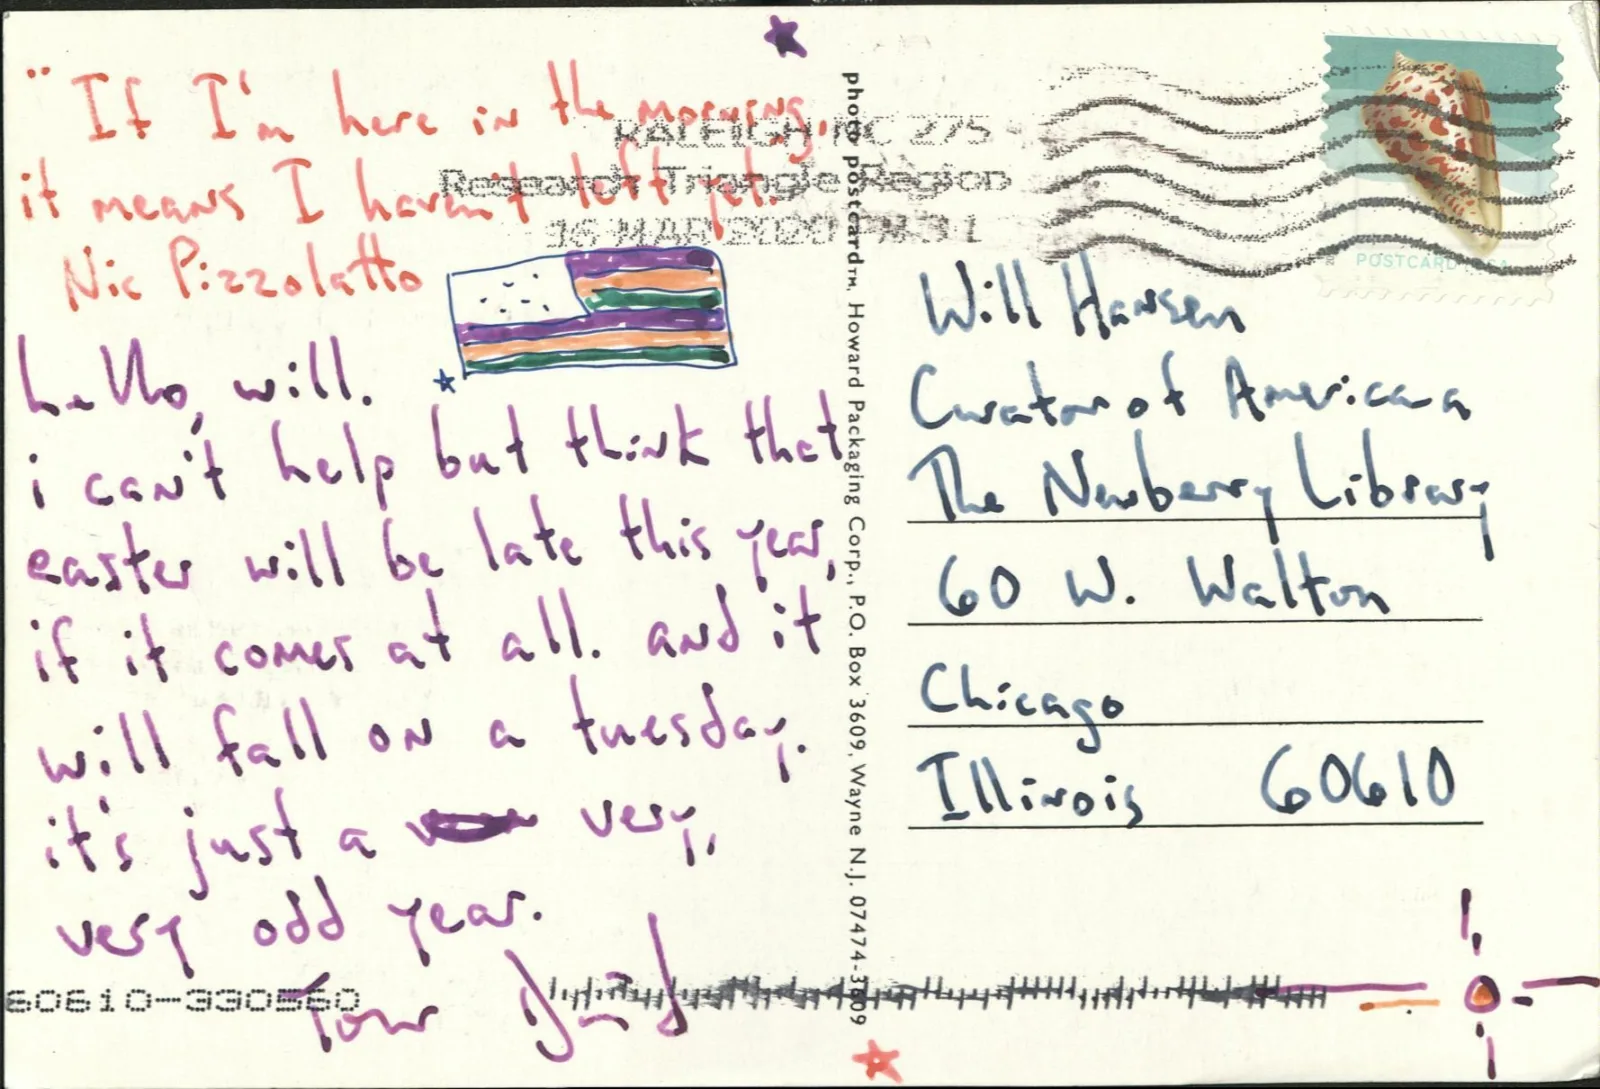 "If I'm here in the morning,
it means I haven't left yet.
Nic Pizzolatto
hello, will.
i can't help but think that
easter will be late this year,
if it comes at all. and it
will fall on a tuesday.
it's just a very,
very odd year.
Your
60610-330560
RALEIGH NC 275
Research Triangle Region
16 MAR 2020 PM 3 L
photo postcard™, Howard Packaging Corp., P.O. Box 3609, Wayne N.J. 07474-3609
POSTCARD USA
Will Hansen
Curator of Americana
The Newberry Library
60 W. Walton
Chicago
Illinois 60610